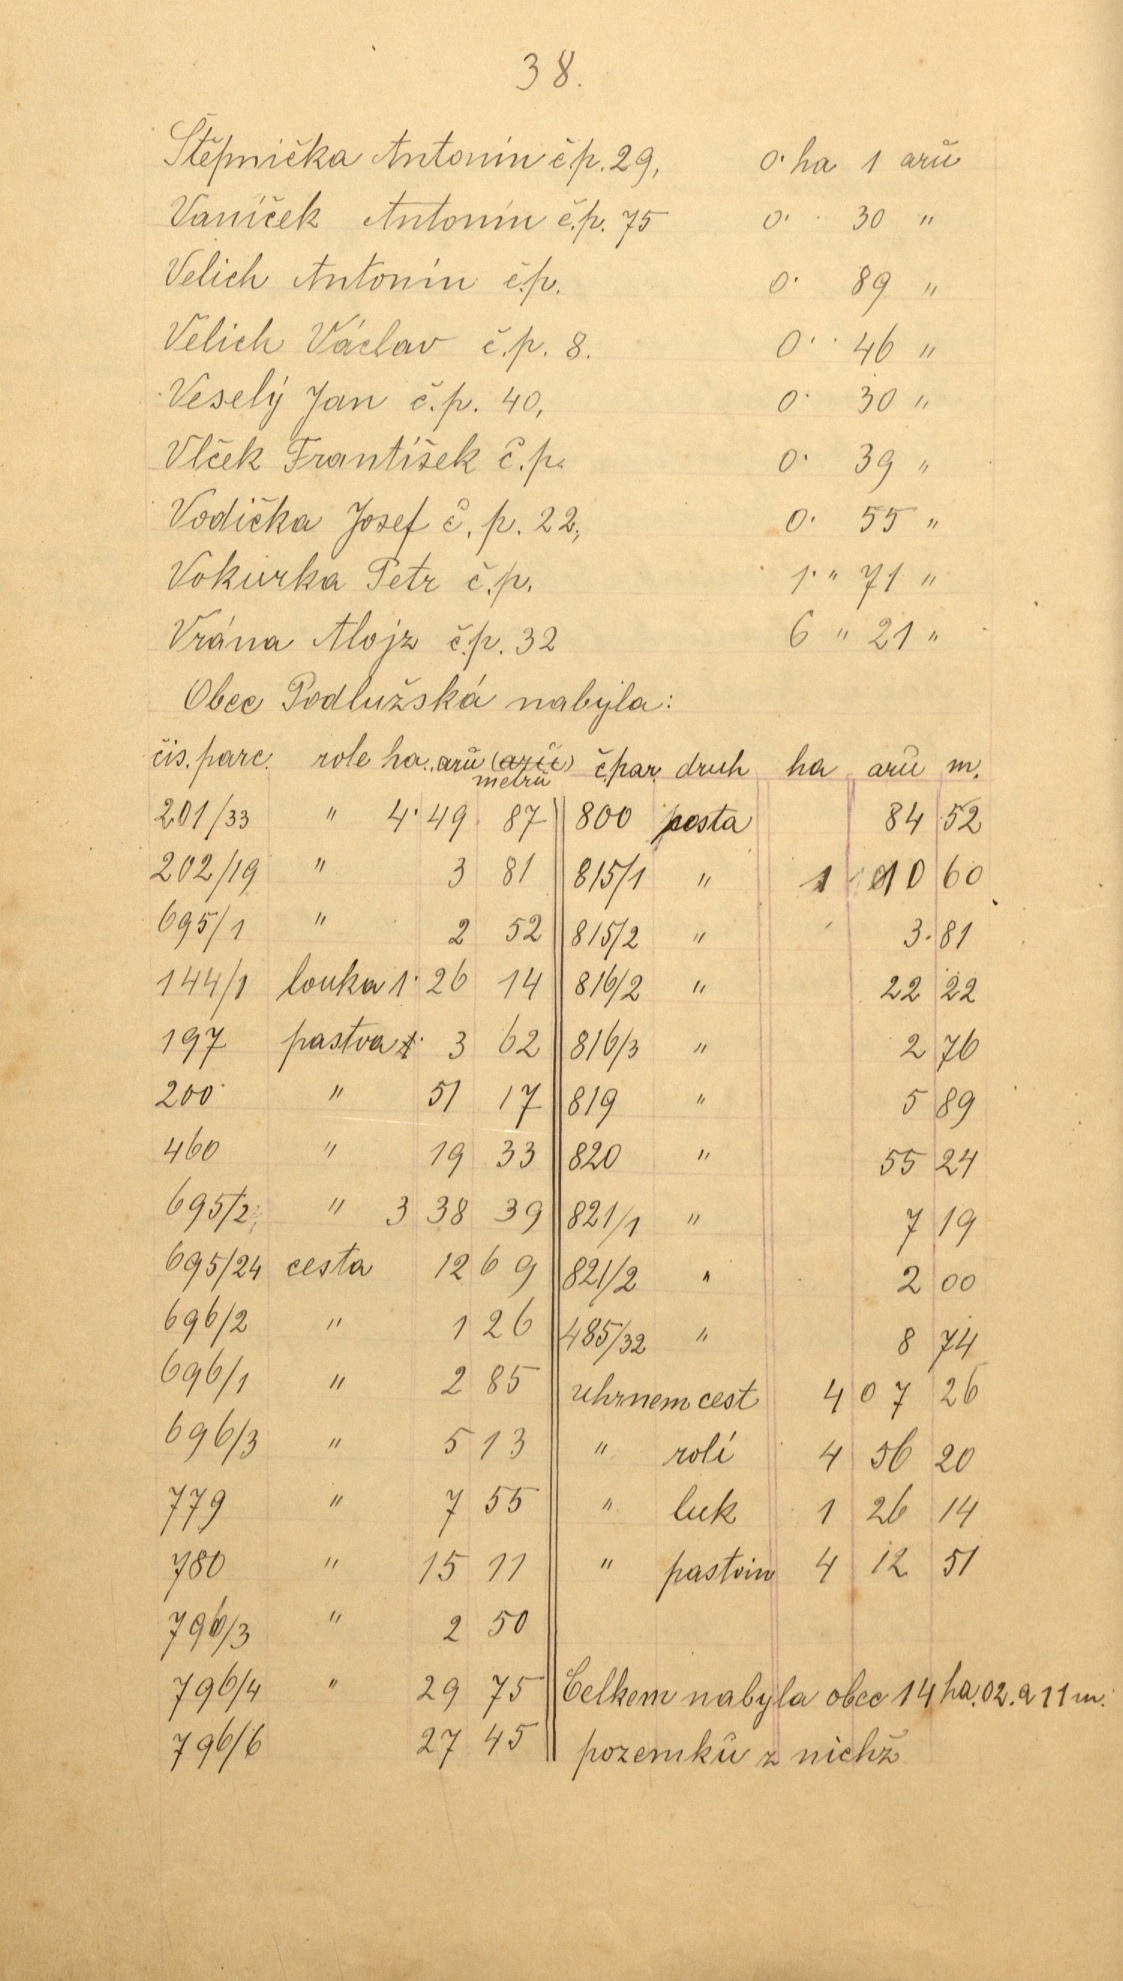 38.
Štěpnička Antonín čp. 29, 0· ha 1 arů
Vaníček Antonín č.p. 75 0· · 30 "
Velich Antonín č.p. 0· 89 "
Velich Václav č.p. 8. 0· · 46 "
Veselý Jan č.p. 40, 0· 30 "
Vlček František č.p. 0· 39 "
Vodička Josef č.p. 22, 0· 55 "
Vokurka Petr č.p. 1· " 71 "
Vrána Alojz č.p. 32 6 " 21 "
Obec Podlužská nabyla:
čís. parc. role ha. arů (arů) metrů č.par. druh ha arů m.
201/33 " 4· 49 87 800 cesta 84 52
202/19 " 3 81 815/1 " 1 10 60
695/1 " 2 52 815/2 " 3· 81
144/1 louka 1· 26 14 816/2 " 22 22
197 pastva 3 62 816/3 " 2 76
200 " 51 17 819 " 5 89
460 " 19 33 820 " 55 24
695/2 " 3 38 39 821/1 " 7 19
695/24 cesta 12 69 821/2 " 2 00
696/2 " 1 26 485/32 " 8 74
696/1 " 2 85 uhrnem cest 4 07 26
696/3 " 5 13 " rolí 4 56 20
779 " 7 55 " luk 1 26 14
780 " 15 11 " pastvin 4 12 51
796/3 " 2 50
796/4 " 29 75 Celkem nabyla obec 14 ha. 02. a 11 m.
796/6 27 45 pozemků z nichž